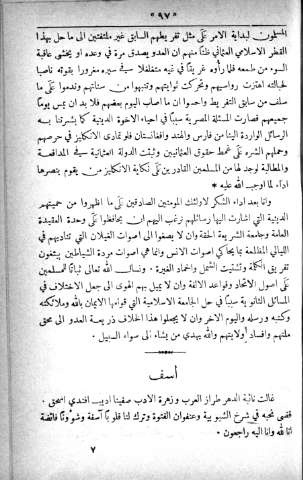 « ٩٧ »
المسلمون لبداية الامر على مثل تفريطهم السابق غير ملتفتين الى ما حل بهذا
القطر الاسلامي العثماني ظناً منهم ان العدو يصدق مرة في وعده او يخشى عاقبة
السوء من طمعه فلما رأوه غريقاً في غيه متغلغلاً في سيره مغروراً بقوته ناصباً
لحبالته اهتزت رواسيهم وتحركت نوايتهم وتنبهوا من سنتهم وندموا على ما
سلف من سابق التفريط واحدوا ان ما اصاب اليوم بعضهم فلا بد ان يمس يوماً
جميعهم فصارت المسئلة المصرية سبباً في احياء الاخوة الدينية كما بشرتنا به
الرسائل الواردة الينا من فارس والهند وافغانستان فلو تمادى الانكليز في حرصهم
وحملهم الشره على غمط حقوق العثمانيين وثبتت الدولة العثمانية في المدافعة
والمطالبة لوجد لها من المسلمين القادرين على نكاية الانكليز من يقوم بنصرها
اداء لما اوجب الله عليه *
وانا بعد اداء الشكر لاولئك المؤمنين الصادقين على ما اظهروا من حميتهم
الدينية التي اشارت اليها رسائلهم نرغب اليهم ان يحافظوا على وحدة العقيدة
وجامعة الشريعة الحقة وان لا يصغوا الى اصوات الغيلان التي تناديهم في
الليالي المظلمة بما يحاكي اصوات الانس وانما هي اصوات مردة الشياطين يبتغون
تفريق الكلمة وتشتيت الشمل وانحاد الغيرة . ونسأل الله تعالى ثباتاً للمسلمين
على اصول الاتحاد وقواعد الالفة وان لا يميل بهم الهوى الى جعل الاختلاف في
المسائل الثانوية سبباً في حل الجامعة الاسلامية التي قوامها الايمان بالله وملائكته
وكتبه ورسله واليوم الاخر وان لا يجعلوا هذا الخلاف ذريعة العدو الى محق
ملتهم وافساد ولايتهم والله يهدي من يشاء الى سواء السبيل .
أسف
غالت نائبة الدهر طراز العرب وزهرة الادب صفينا اديب افندي اسحق .
قضى نحبه في شرخ الشبوبية وعنفوان الفتوة وترك لنا قلوباً آسفة وشؤوناً فائضة
انا لله وانا اليه راجعون .
٧